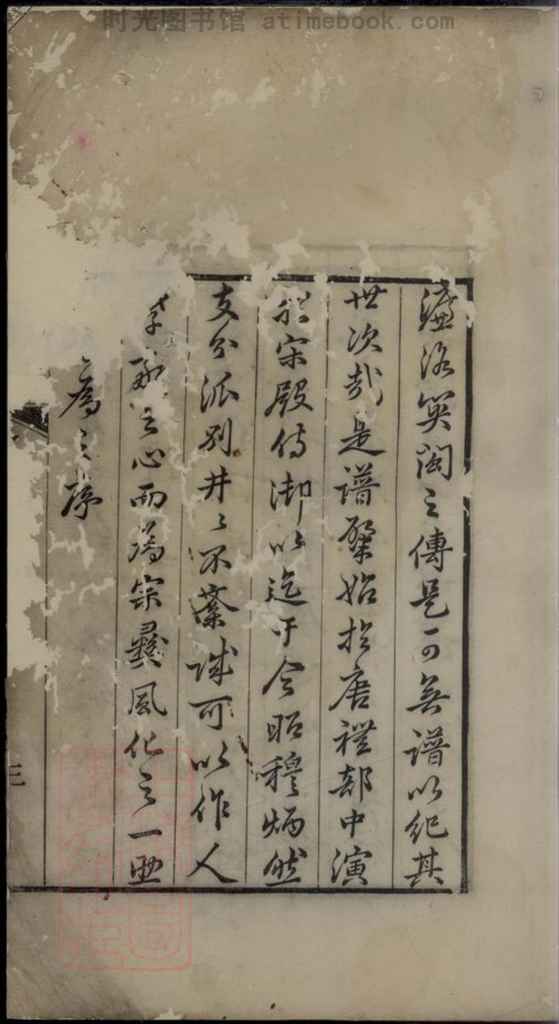 时光图书馆 atimebook.com
濂洛箕閩之傳是可無譜以紀其
世次哉是譜肇始於唐禮部中演
於宋殿侍御以迄于今昭穆炳然
支分派別井々不紊誠可以作人
孝敬之心而為宗彝風化之一
為之序
三